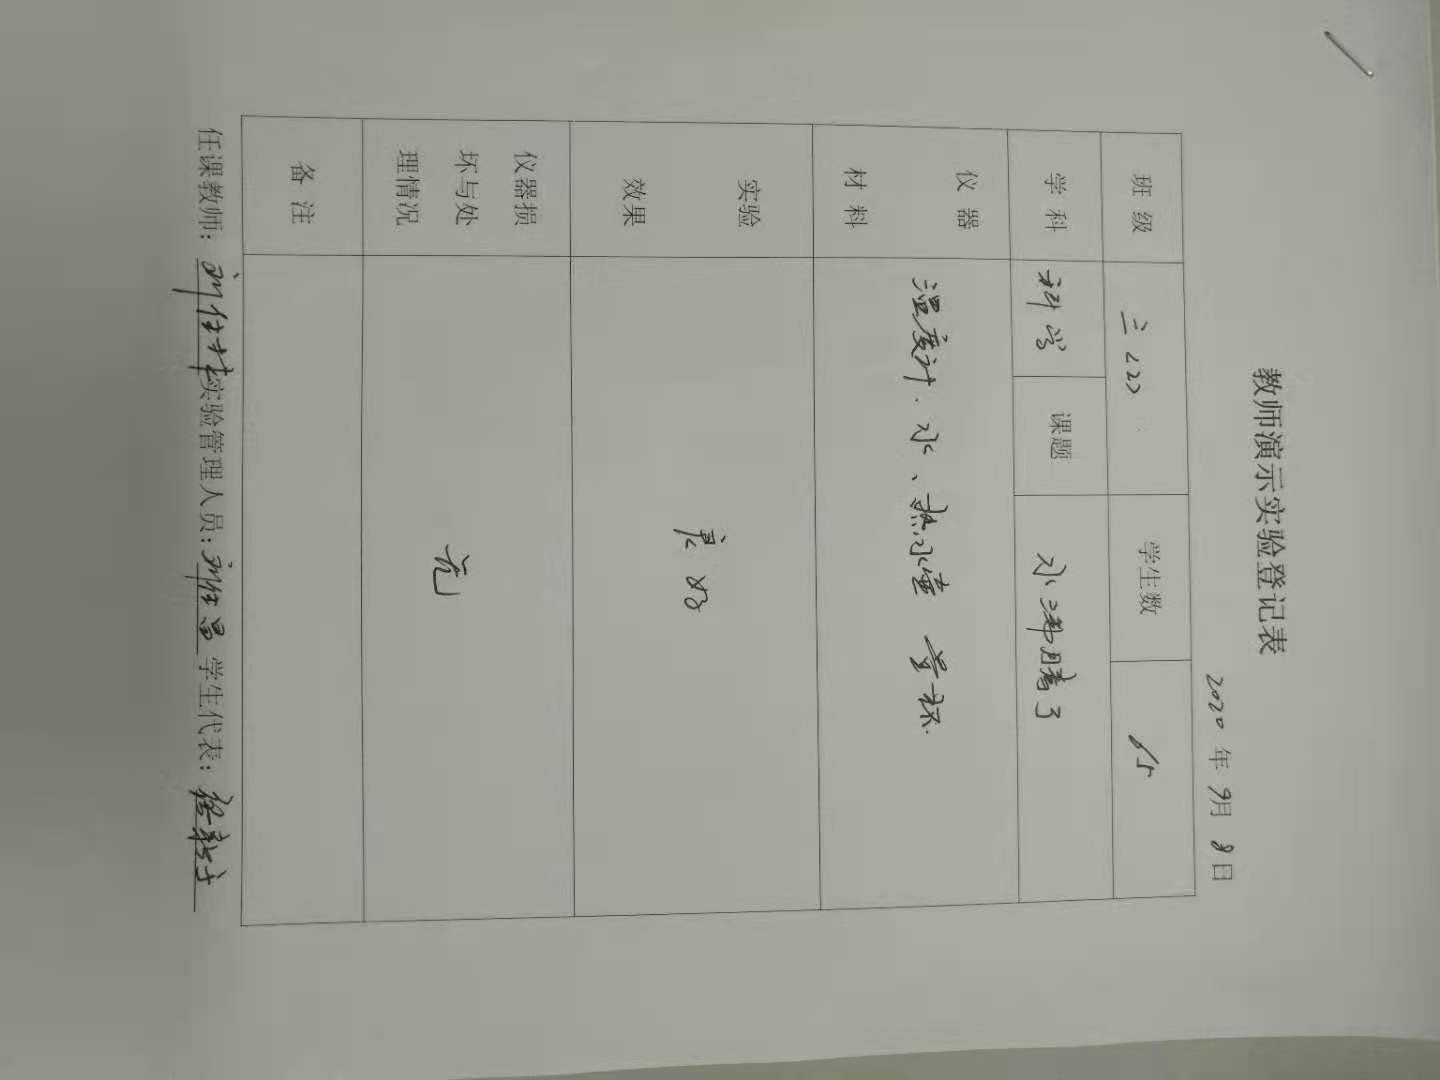 教师演示实验登记表
2020 年 9月 8 日
班 级 三(2) 学生数 65
学 科 科学 课题 水沸腾了
仪 器 材 料 温度计. 水、热水壶 量杯.
实验效果 良好
仪器损坏与处理情况 无
备 注
任课教师: 实验管理人员: 学生代表: